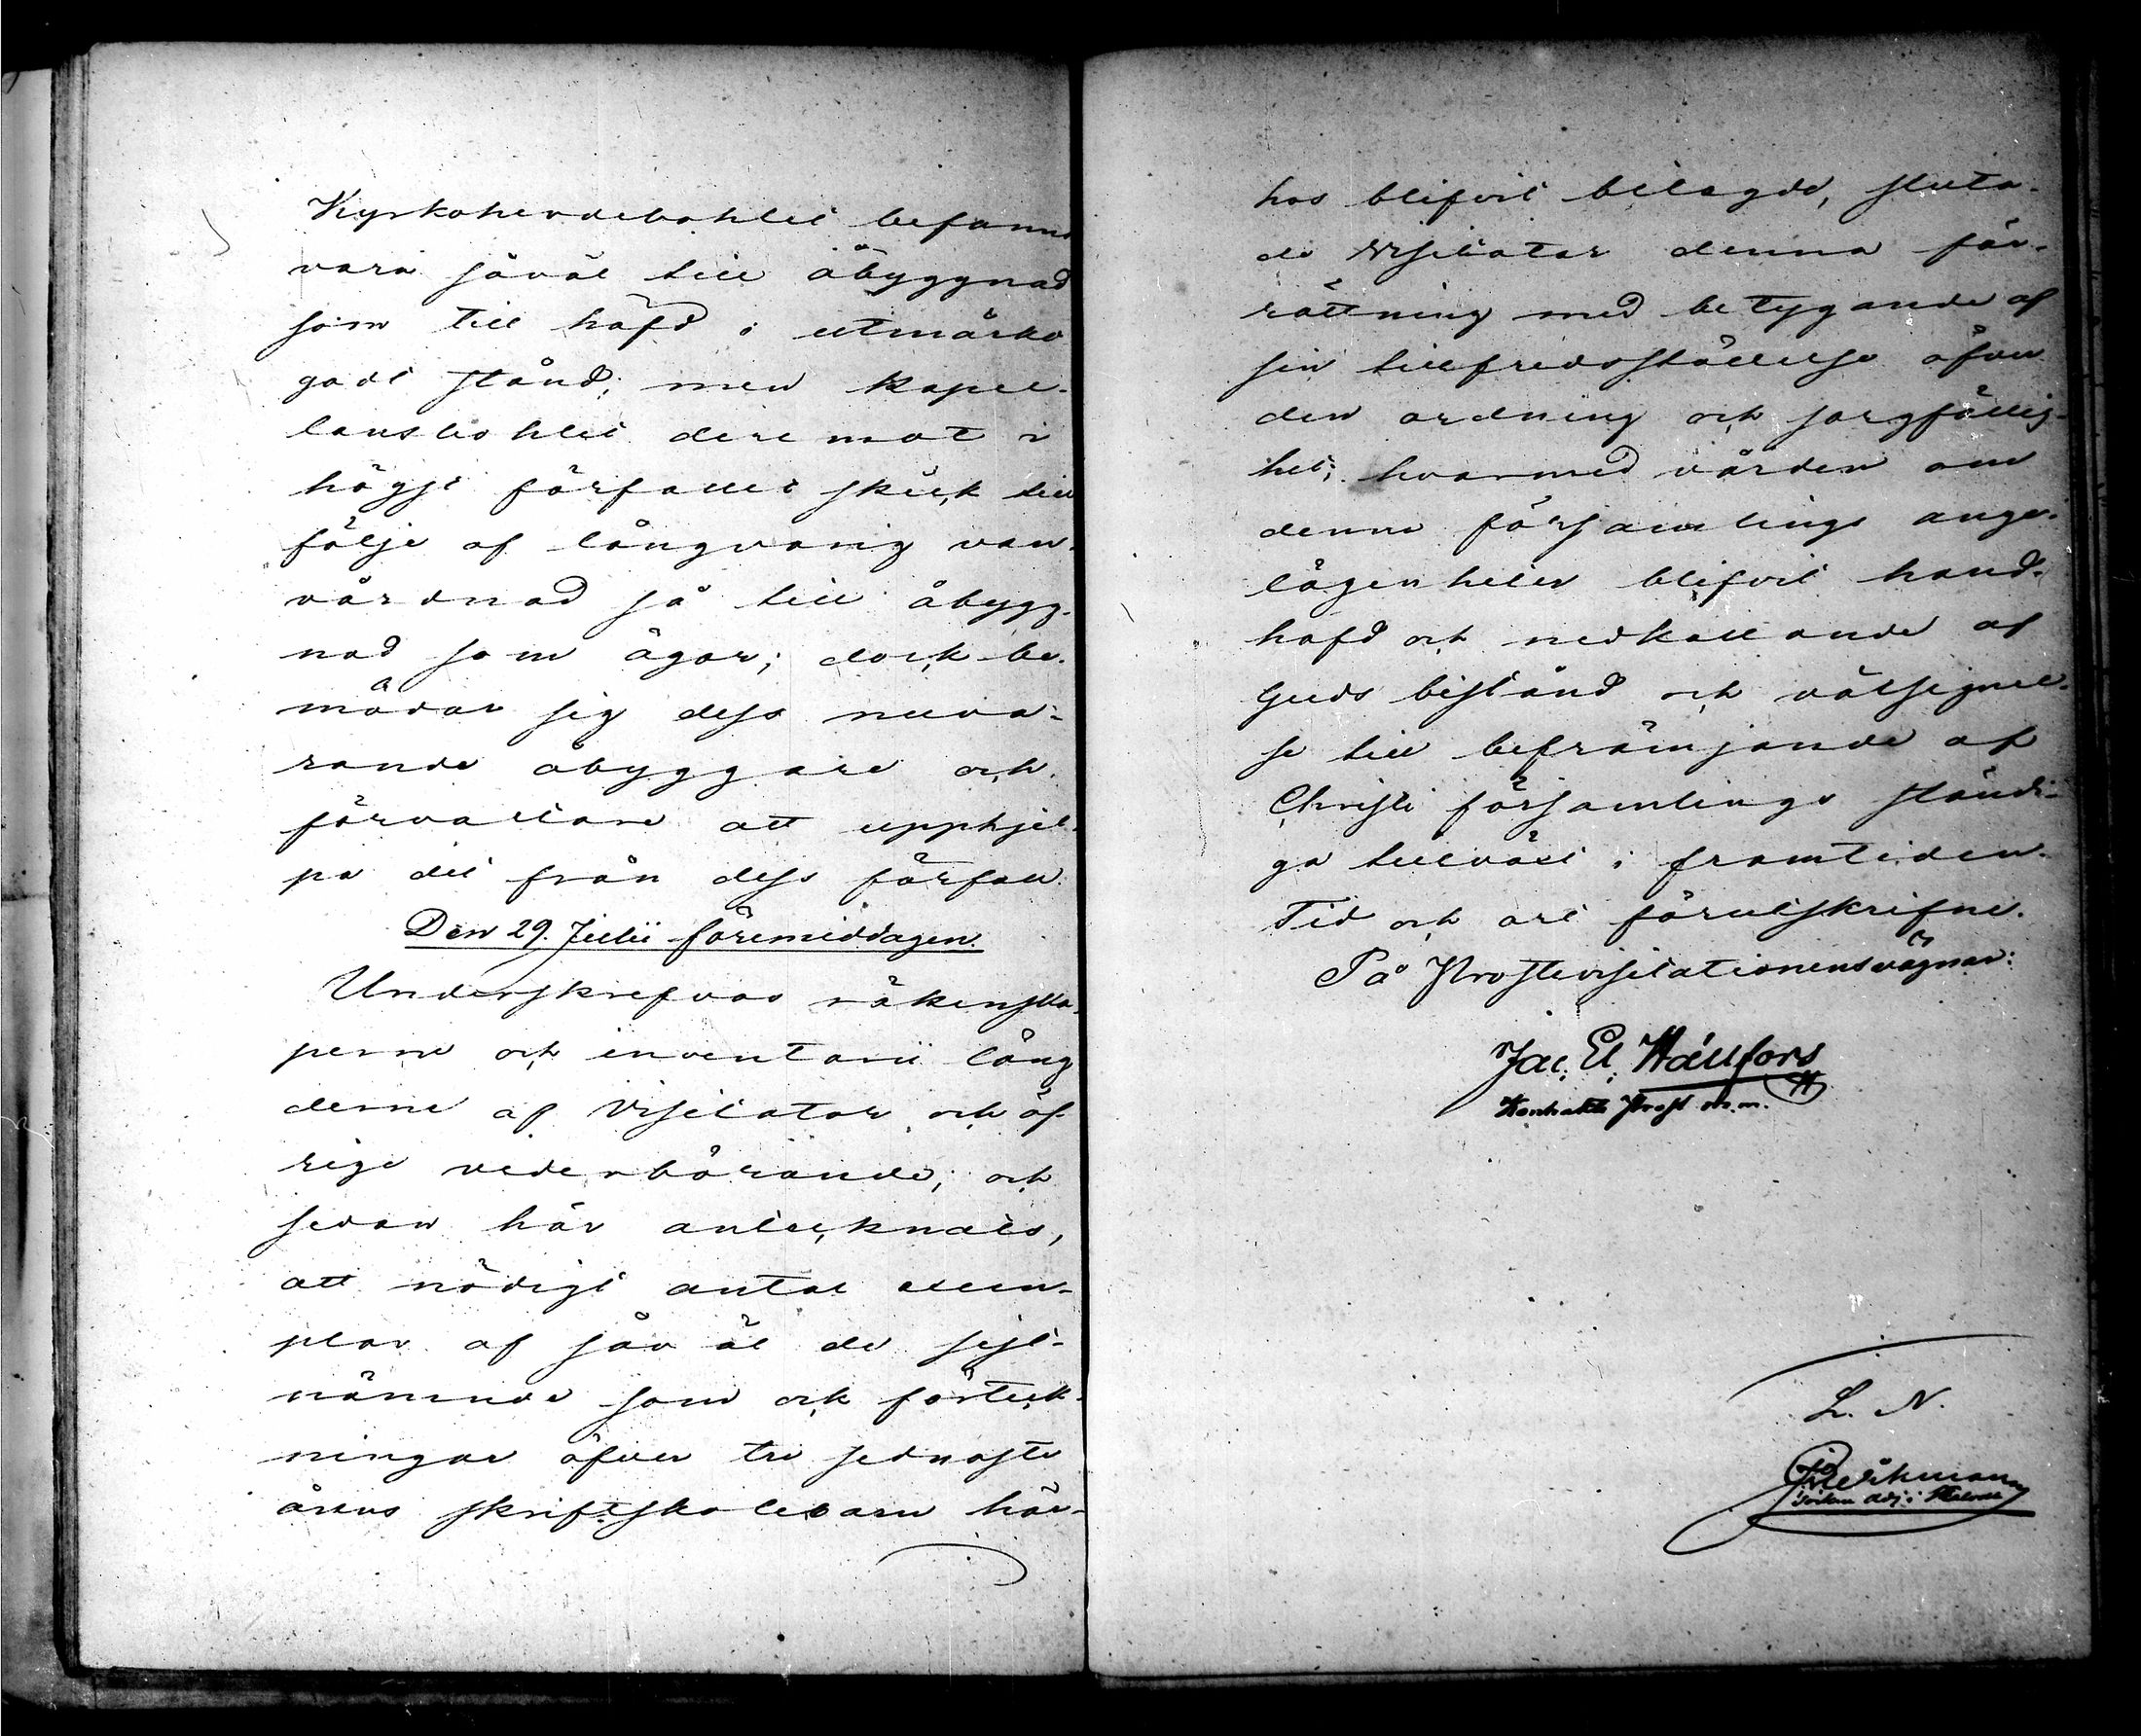 Kyrkoherdebohlet befanns
vara såväl till åbyggnad
som till häfd i utmärkt
godt stånd; men kapel-
lansbohlet deremot i
högst förfallet skick till
följe af långvarig van-
vårdnad så till åbygg-
nad som ägor; dock be-
mödar sig dess nuva-
rande åbyggare och
förvaltare att upphjel-
pa det från dess förfall.
Den 29. Julii förmiddagen.
Underskrefvos räkenska-
perne och inventarii läng
derne af Visitator och öf-
rige vederbörande; och
sedan här antecknats,
att nödigt antal exem-
plar af såväl de sist-
nämnde som ock förteck-
ningar öfver tre sednaste
årens skriftskolebarn här-
hos blifvit bilagde, sluta-
de Visitator denna för-
rättning med betygande af
sin tillfredsställelse öfver
den ordning och sorgfällig-
het, hvarmed vården om
denna församlings ange-
lägenheter blifvit hand-
hafd och nedkallande af
Guds bistånd och välsignel-
se till befrämjande af
Christi församlings ständi-
ga tillväxt i framtiden.
Tid och ort förutskrifne.
På Prostevisitationens vägnar:
Jac. El. Hällfors
Kontrakts Prost m.m.
L. N.